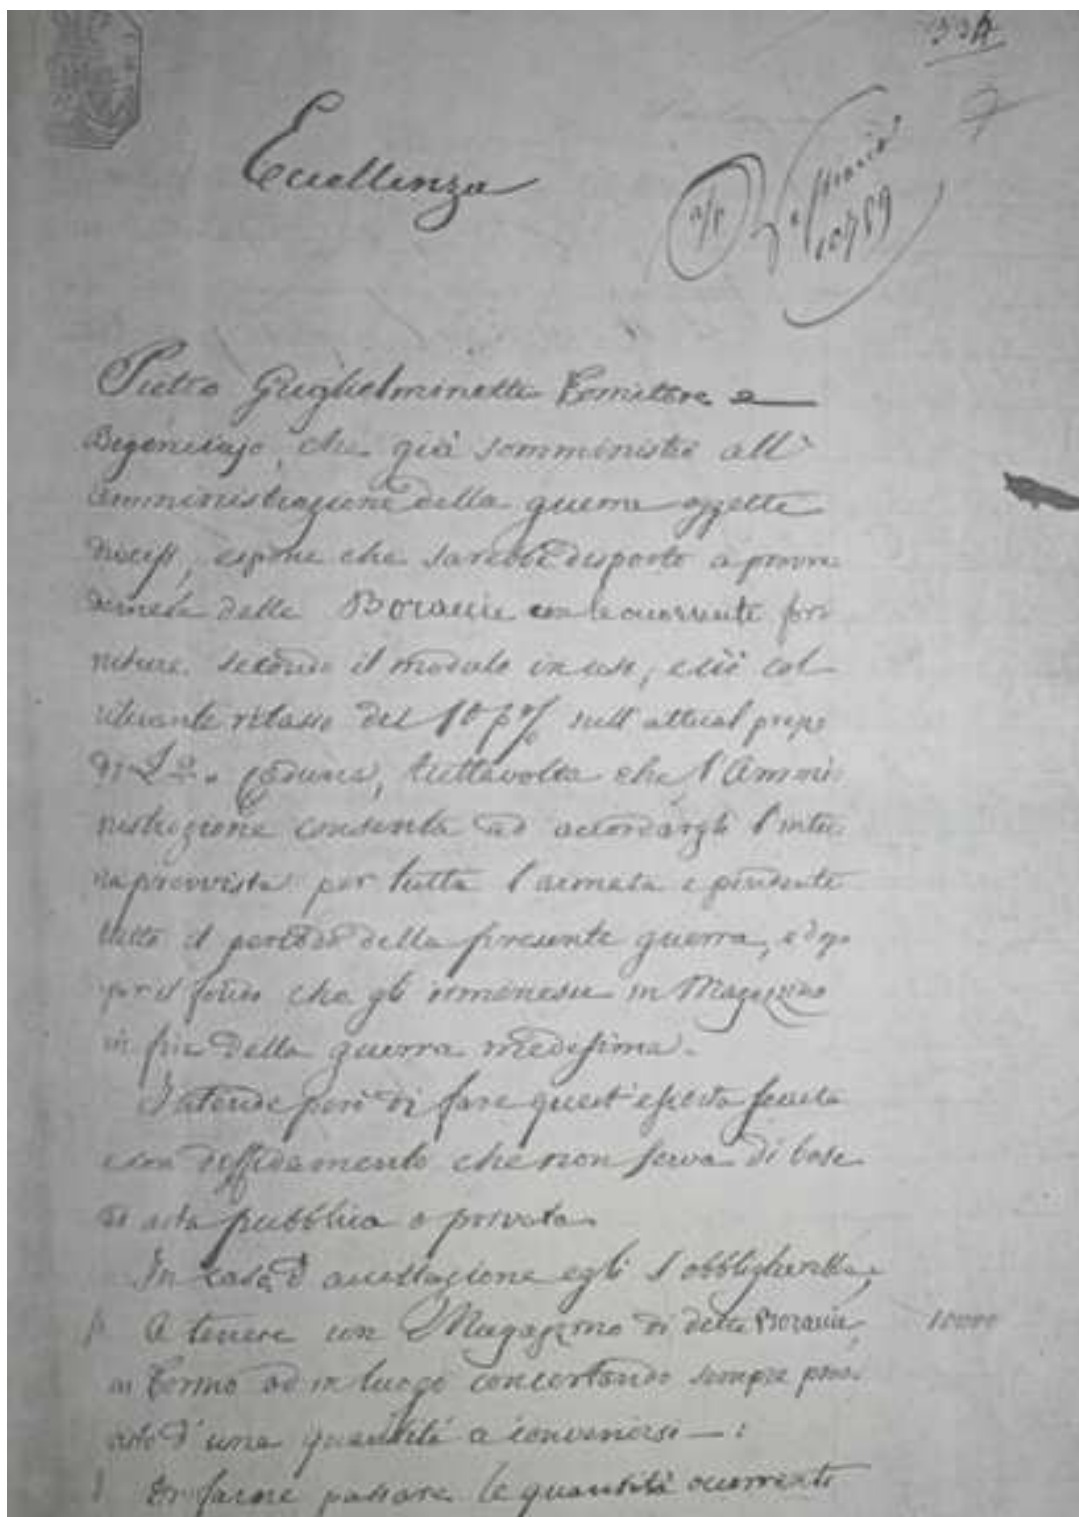 Eccellenza
10789
Pietro Guglielminetti Fornitore e
che già somministrò all'
Amministrazione della guerra oggetti
diversi, espone che sarebbe disposto a provve
dimento delle Boracie con le occorrente for
niture secondo il modulo in uso, e ciò col
rilevante ribasso del 10 p% sull'attual prezzo
di L 2. caduna, tuttavolta che l'Ammi
nistrazione consenta ad accordargli l'inte
ra provvista per tutta l'armata e pendente
tutto il periodo della presente guerra, e dopo
per il fondo che gli rimanesse in Magazzino
in fine della guerra medesima.
Intende però di fare quest'offerta segreta
e con diffidamento che non serva di base
ad asta pubblica o privata
In caso d'accettazione egli s'obbligherebbe,
A tenere un Magazzino di dette Boracie, 10000
in Torino od in luogo concertando sempre prov
visto d'una quantità a convenirsi — :
Di farne passare le quantità occorrenti